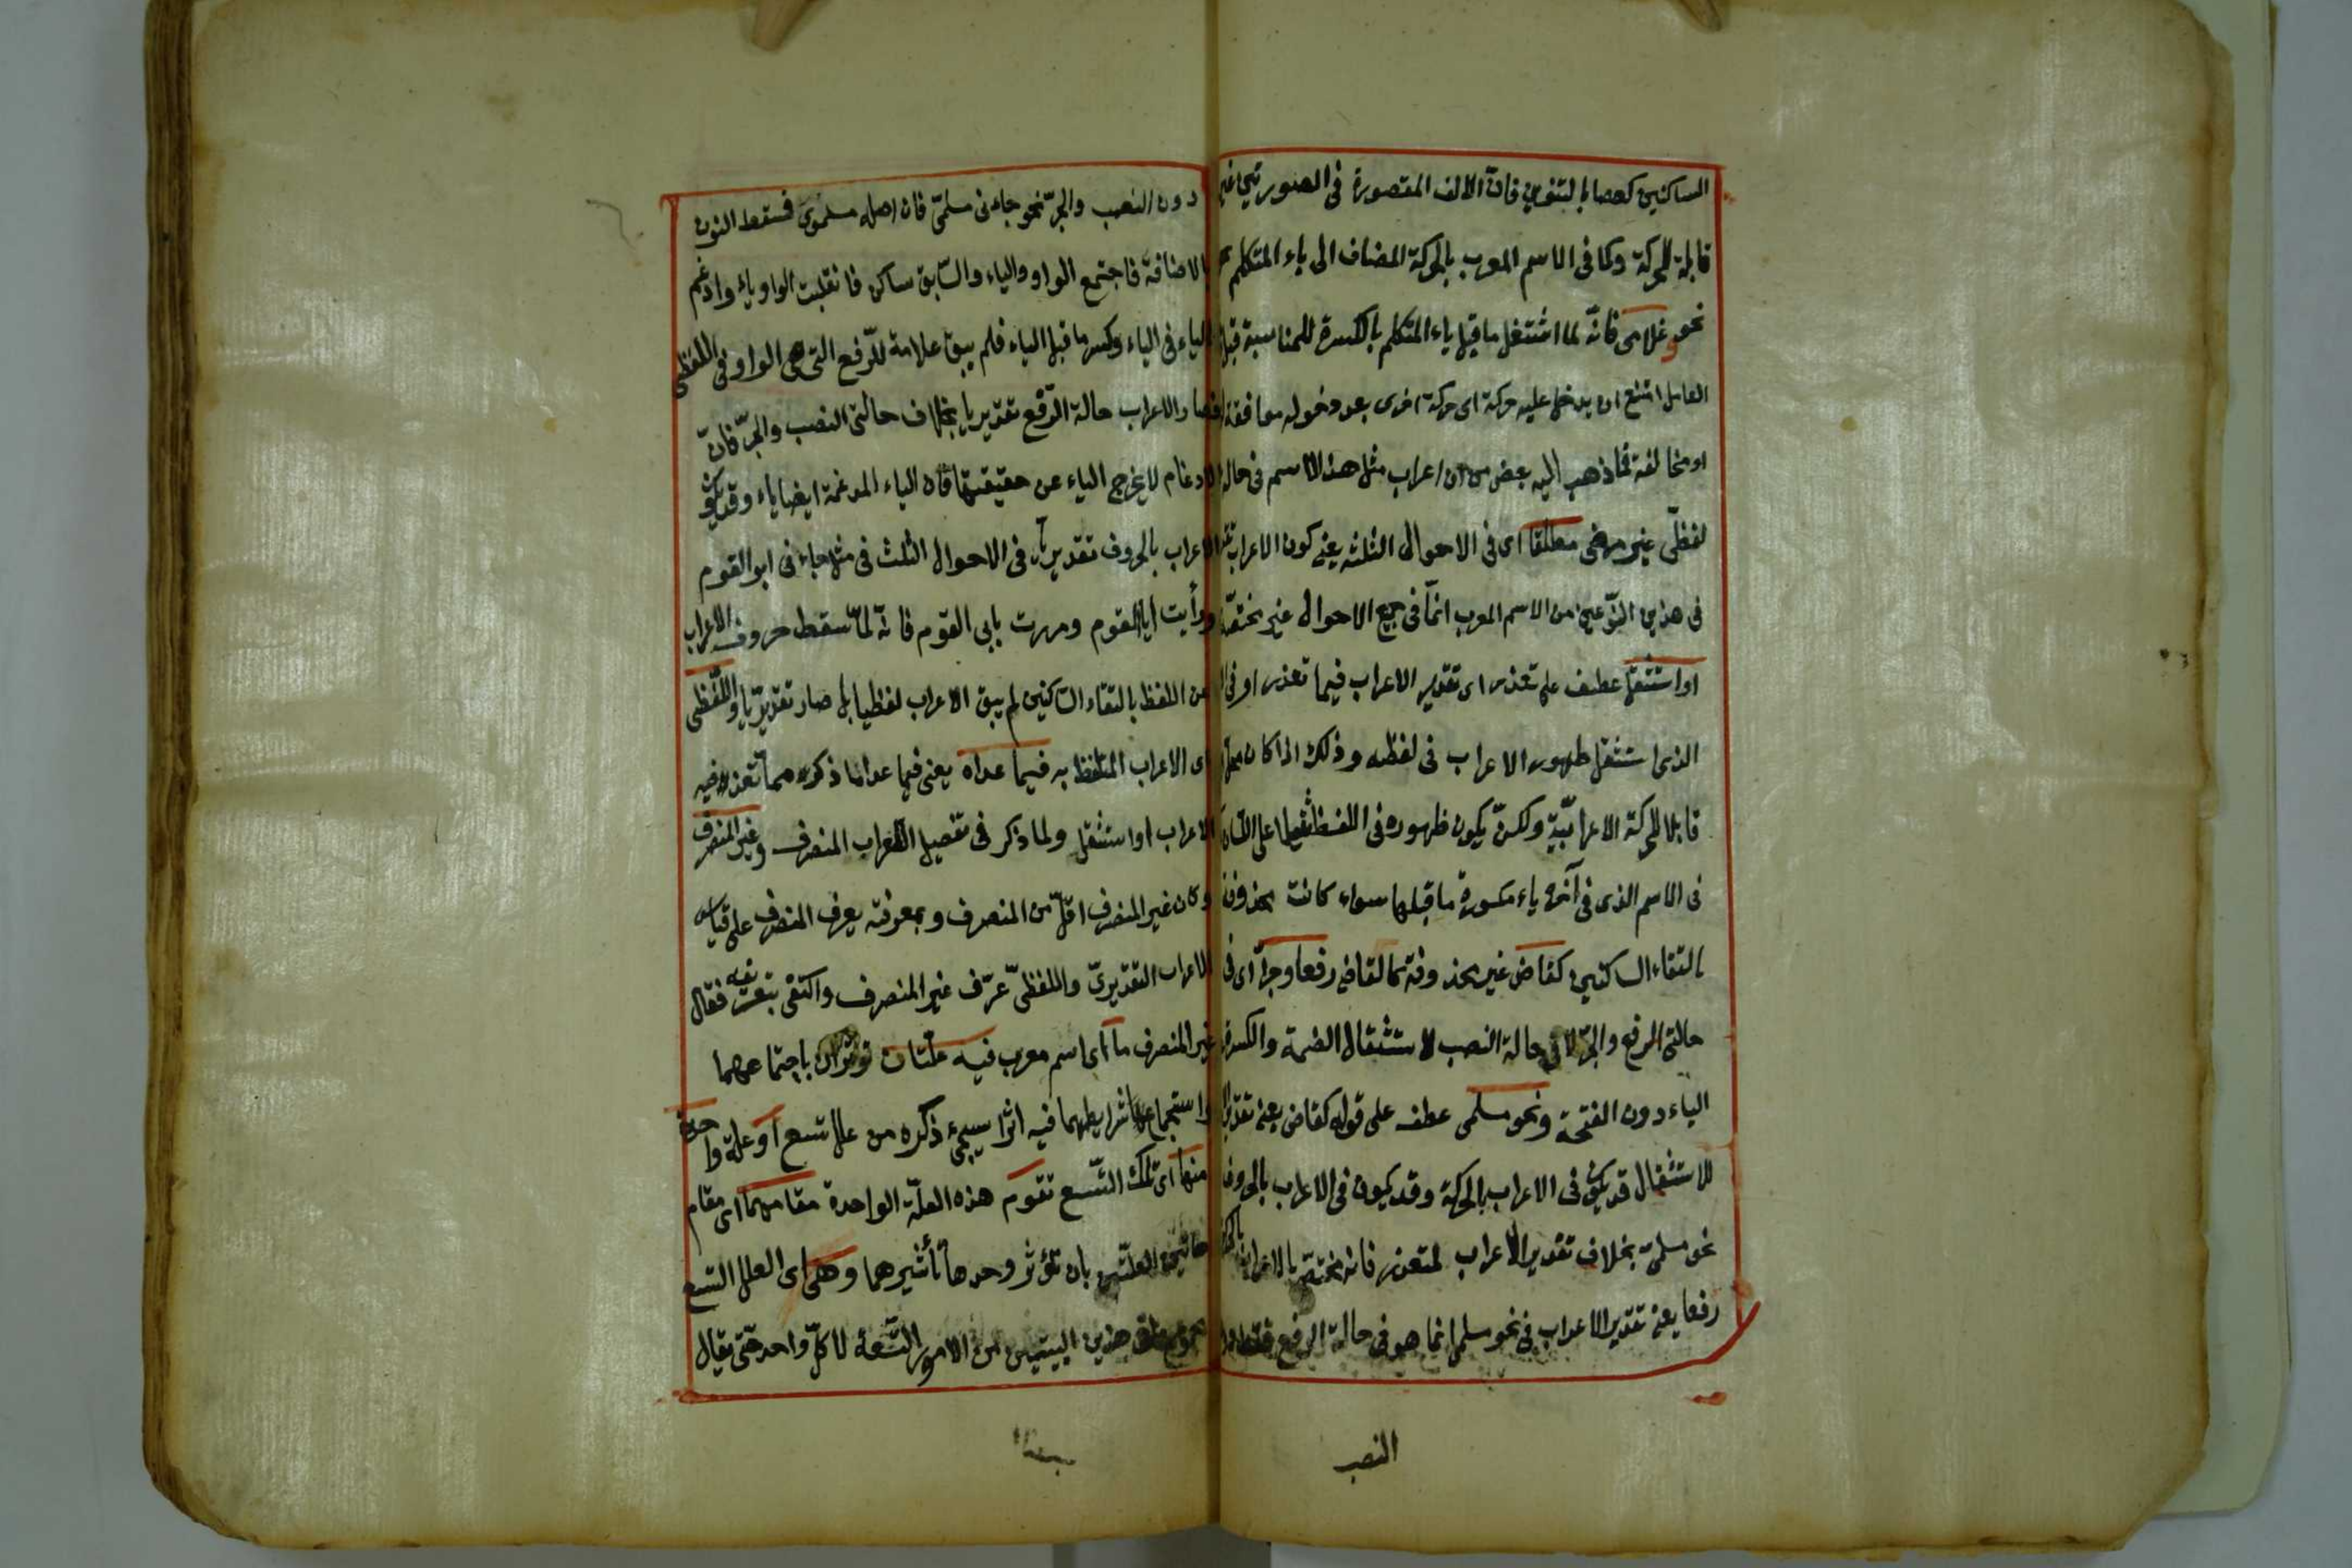 الساكنين كعصا بالتنوين فانّ الالف المقصورة فى الصورتين غير
قابلة للحركة وكما فى الاسم المعرب بالحركة المضاف الى ياء المتكلم
نحو غلامى فانّه لما اشتغل ماقبل ياء المتكلم بالكسرة للمناسبة قبل
العامل امتنع ان يدخل عليه حركة اى حركة اخرى بعد دخوله موافقة
او مخالفة فما ذهب اليه بعض من ان اعراب مثل هذا الاسم فى حالة
لفظىّ غير مرضى مطلقا اى فى الاحوال الثلثة يعنى كون الاعراب
فى هذين النّوعين من الاسم المعرب انمّا فى جميع الاحوال غير مختصّة
او استثقل عطف على تعذر اى تقدير الاعراب فيما تعذر او فى
الذى استثقل ظهور الاعراب فى لفظه وذلك اذا كان
قابلا للحركة الاعرابيّة ولكنّ يكون ظهوره فى اللفظ ثقيلا على اللسان
فى الاسم الذى فى آخره ياء مكسورة ماقبلها سواء كانت محذوفة
بالتقاء الساكنين كقاض غير محذوفة كالقاضى رفعا وجرّا اى فى
حالتى الرفع والجرّ لا فى حالة النصب لاستثقال الضمة والكسرة
الياء دون الفتحة ونحو مسلمى عطف على قوله كقاض يعنى تقدير
للاستثقال قد يكون فى الاعراب بالحركة وقد يكون فى الاعراب بالحروف
نحو مسلمى بخلاف تقدير الاعراب لمتعذر فانه مختصّ بالاعراب بالحركة
رفعا يعنى تقدير الاعراب فى نحو مسلمى انما هو فى حالة الرفع فقط
النصب
دون النصب والجرّ نحو جاءنى مسلمىّ فان اصله مسلموى فسقط النون
بالاضافة فاجتمع الواو والياء والسّابق ساكن فانقلبت الواو ياء وادغم
الياء فى الياء وكسر ماقبل الياء فلم يبق علامة للرّفع التى هى الواو فى اللفظ
فصار الاعراب حالة الرّفع تقديريا بخلاف حالتى النصب والجرّ فانّ
الادغام لا يخرج الياء عن حقيقتها فان الياء المدغمة ايضا ياء وقد يكون
الاعراب بالحروف تقديريّا فى الاحوال الثلث فى مثل جاءنى ابو القوم
ورأيت ابا القوم ومررت بابى القوم فانّه لمّا سقط حروف الاعراب
من اللفظ بالتقاء السّاكنين لم يبق الاعراب لفظيا بل صار تقديريّا واللّفظى
اى الاعراب المتلفظ به فيما عداه يعنى فيما عدا ما ذكره مما تعذر فيه
الاعراب او استثقل ولما ذكر فى تفصيل الاعراب المنصرف وغير المنصرف
وكان غير المنصرف اقلّ من المنصرف وبمعرفته يعرف المنصرف على قياس
الاعراب التقديرىّ واللفظىّ عرّف غير المنصرف واكتفى بتعريفه فقال
غير المنصرف ما اى اسم معرب فيه علّتان تؤثران باجتماعهما
واستجماع شرايطهما فيه اثرا سيجىء ذكره من علل تسع او علة واحدة
منها اى تلك التّسع تقوم هذه العلّة الواحدة مقامهما اى مقام
هاتين العلّتين بان تؤثر وحدها تأثيرهما وهى اى العلل التسع
مجموع ما فى هذين البيتين من الامور التّسعة لا كلّ واحد حتى يقال